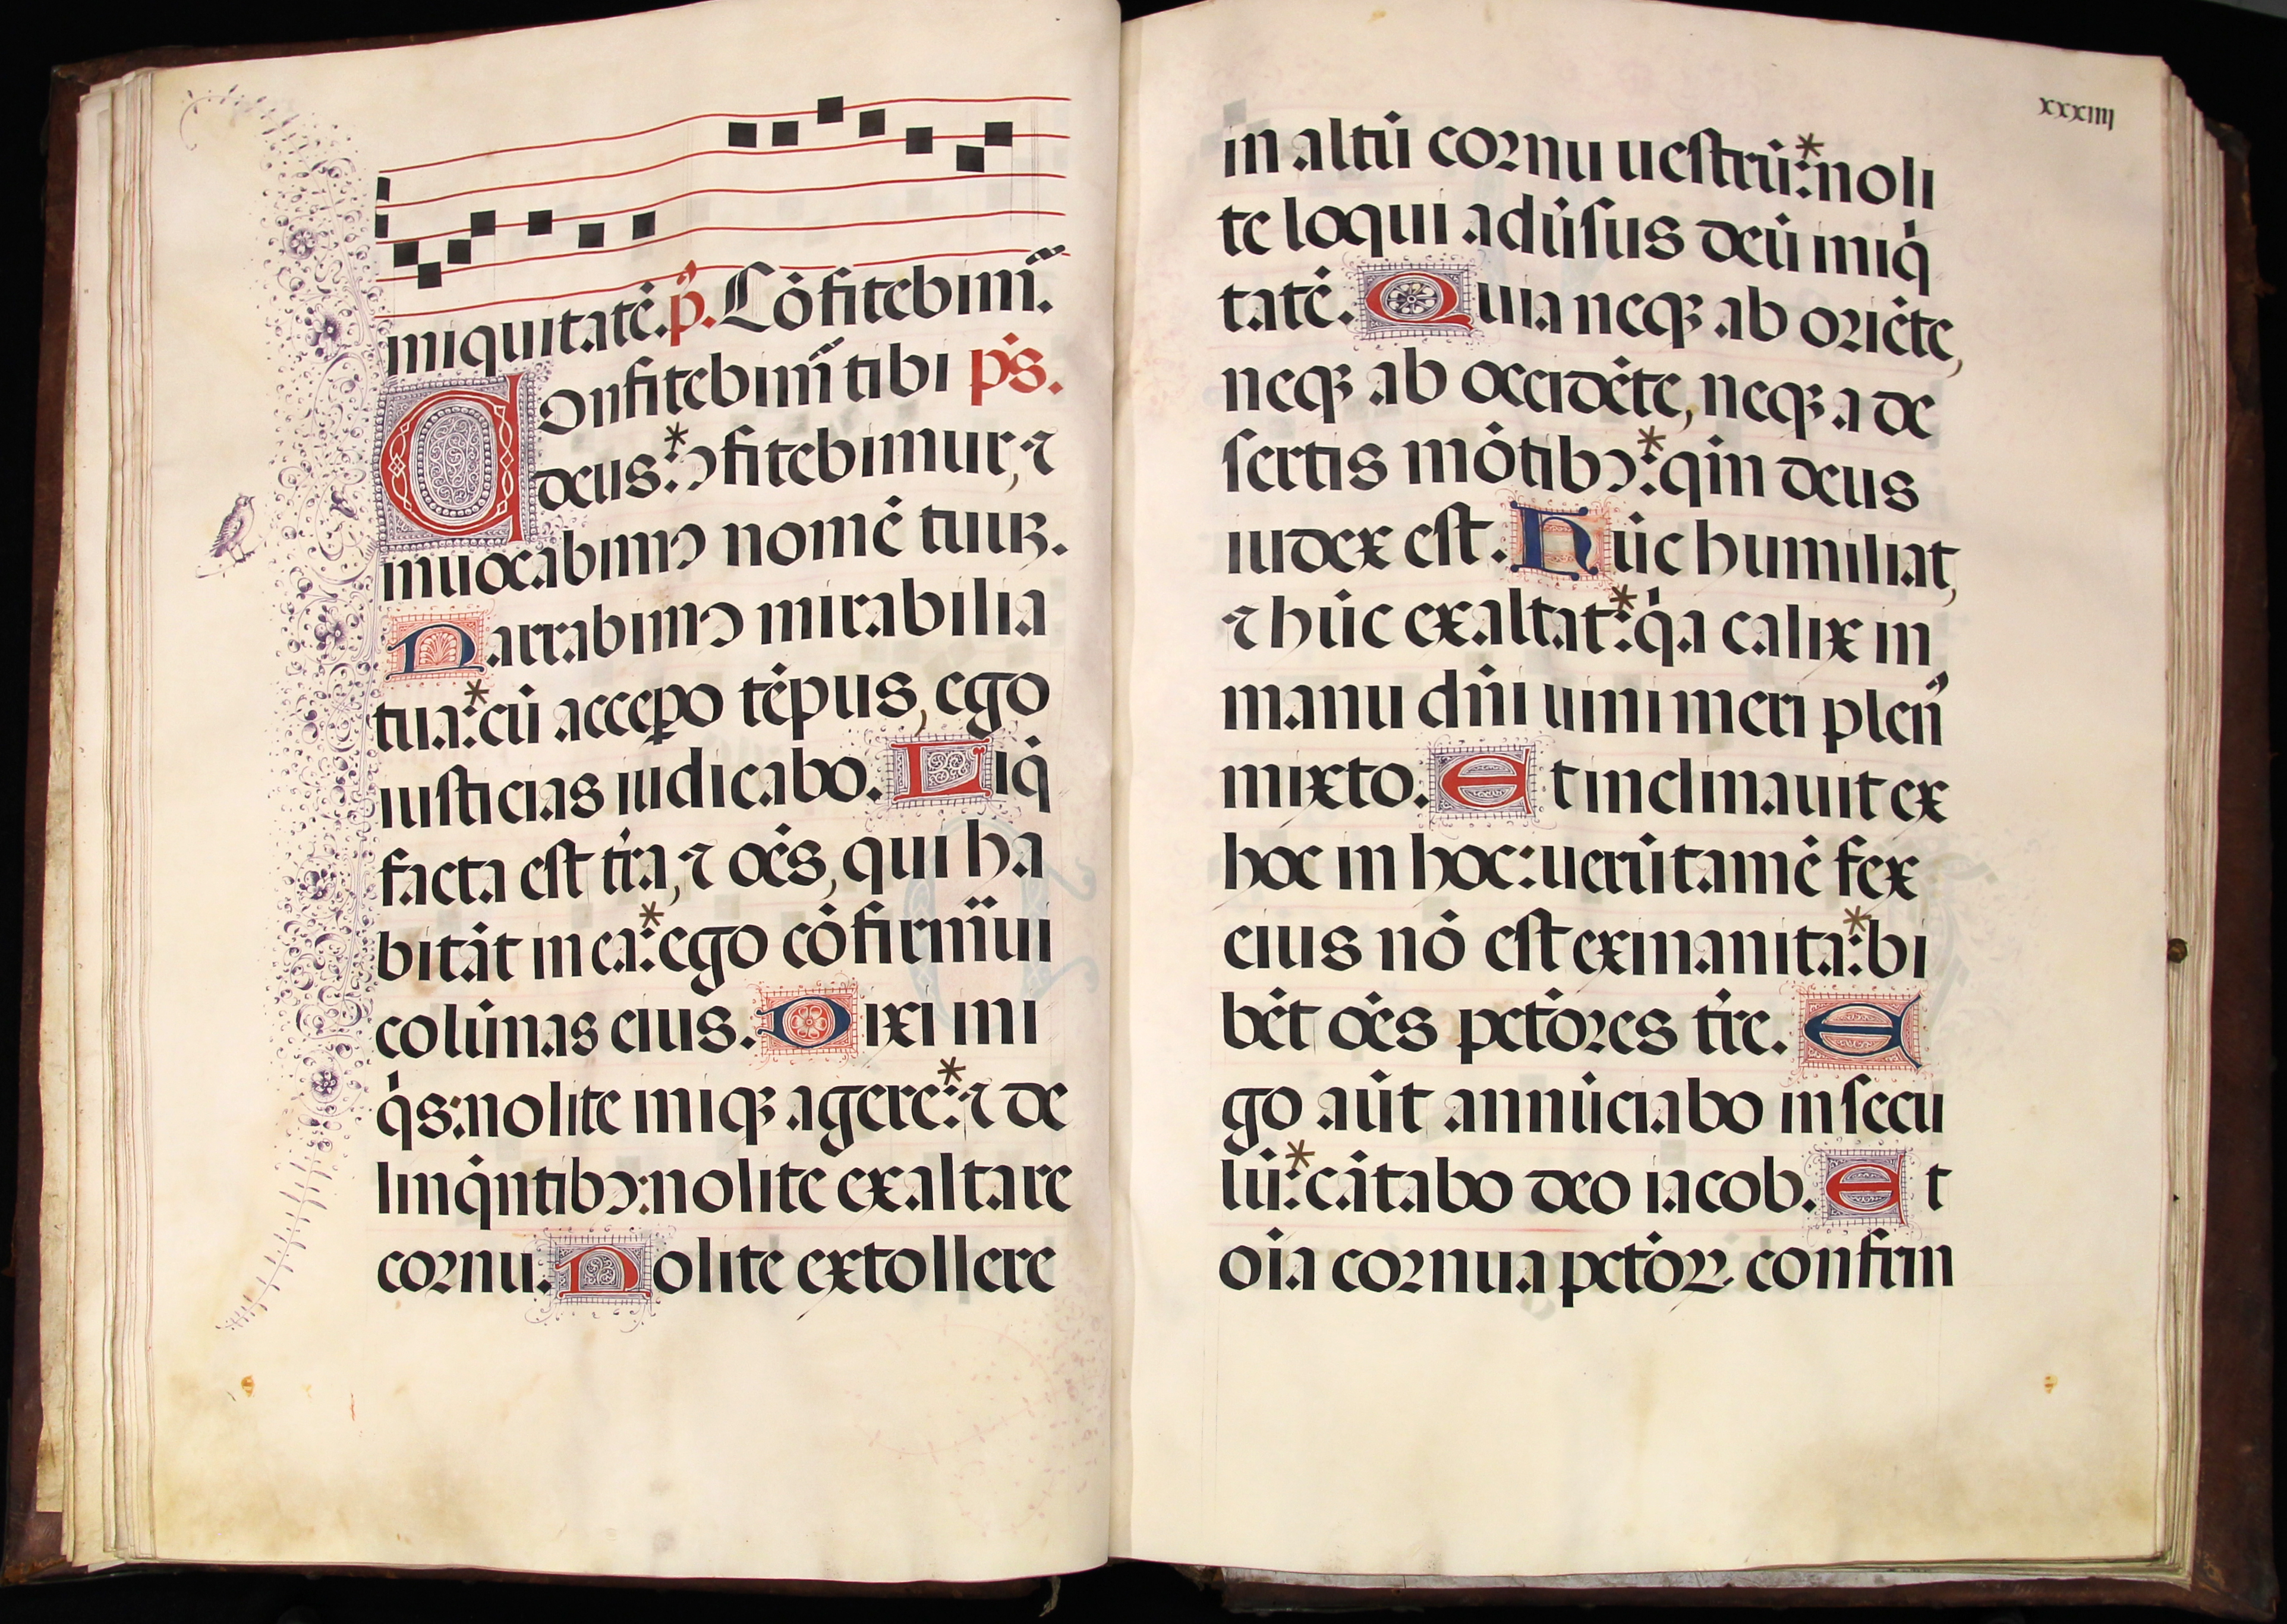 iniquitatē. p̄. Cōfitebim̃.
Confitebim̃ tibi ps̄.
deus: ꝯfitebimur, ⁊
inuocabimꝰ nomē tuuꝫ.
Narrabimꝰ mirabilia
tua: cū accepo tēpus, ego
iusticias iudicabo. Liq̄
facta est tr̄a, ⁊ oēs, qui ha
bitāt in ea: ego cōfirm̃ui
colūnas eius. Dixi ini
q̇s: nolite iniqꝫ agere: ⁊ de
linq̄ntibꝰ: nolite exaltare
cornu. Nolite extollere
xxxiiij
in altū cornu uestrū: noli
te loqui adūsus deū iniq̇
tatē. Quia neqꝫ ab oriēte,
neqꝫ ab occidēte, neqꝫ a de
sertis mōtibꝰ: qm̄ deus
iudex est. Hūc humiliat,
⁊ hūc exaltat: q̇a calix in
manu dn̄i uini meri plen̄
mixto. Et inclinauit ex
hoc in hoc: uerūtamē fex
eius nō est exinanita: bi
bēt oēs pctōres tr̄e. E
go aūt annūciabo in secu
lū: cātabo deo iacob. Et
oīa cornua pctōꝝ confrin